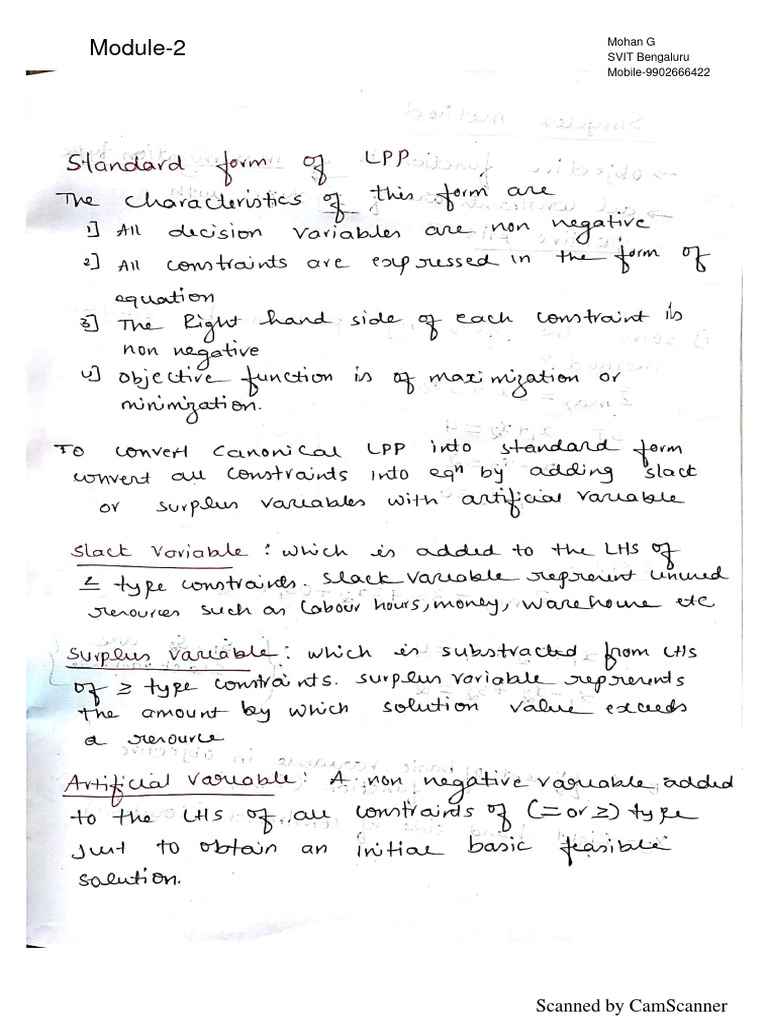 Module-2
Mohan G
SVIT Bengaluru
Mobile-9902666422
Standard form of LPP
The characteristics of this form are
1] All decision variables are non negative
2] All constraints are expressed in the form of
equation
3] The Right hand side of each constraint is
non negative
4] Objective function is of maximization or
minimization.
To convert canonical LPP into standard form
convert all constraints into eqⁿ by adding slact
or surplus variables with artificial variable
Slact variable : which is added to the LHS of
≤ type constraints. Slack variable represent unused
resources such as labour hours, money, warehouse etc
Surplus variable : which is substracted from LHS
of ≥ type constraints. surplus variable represents
the amount by which solution value exceeds
a resource
Artificial variable : A non negative variable added
to the LHS of all constraints of (= or ≥) type
Just to obtain an initial basic feasible
solution.
Scanned by CamScanner